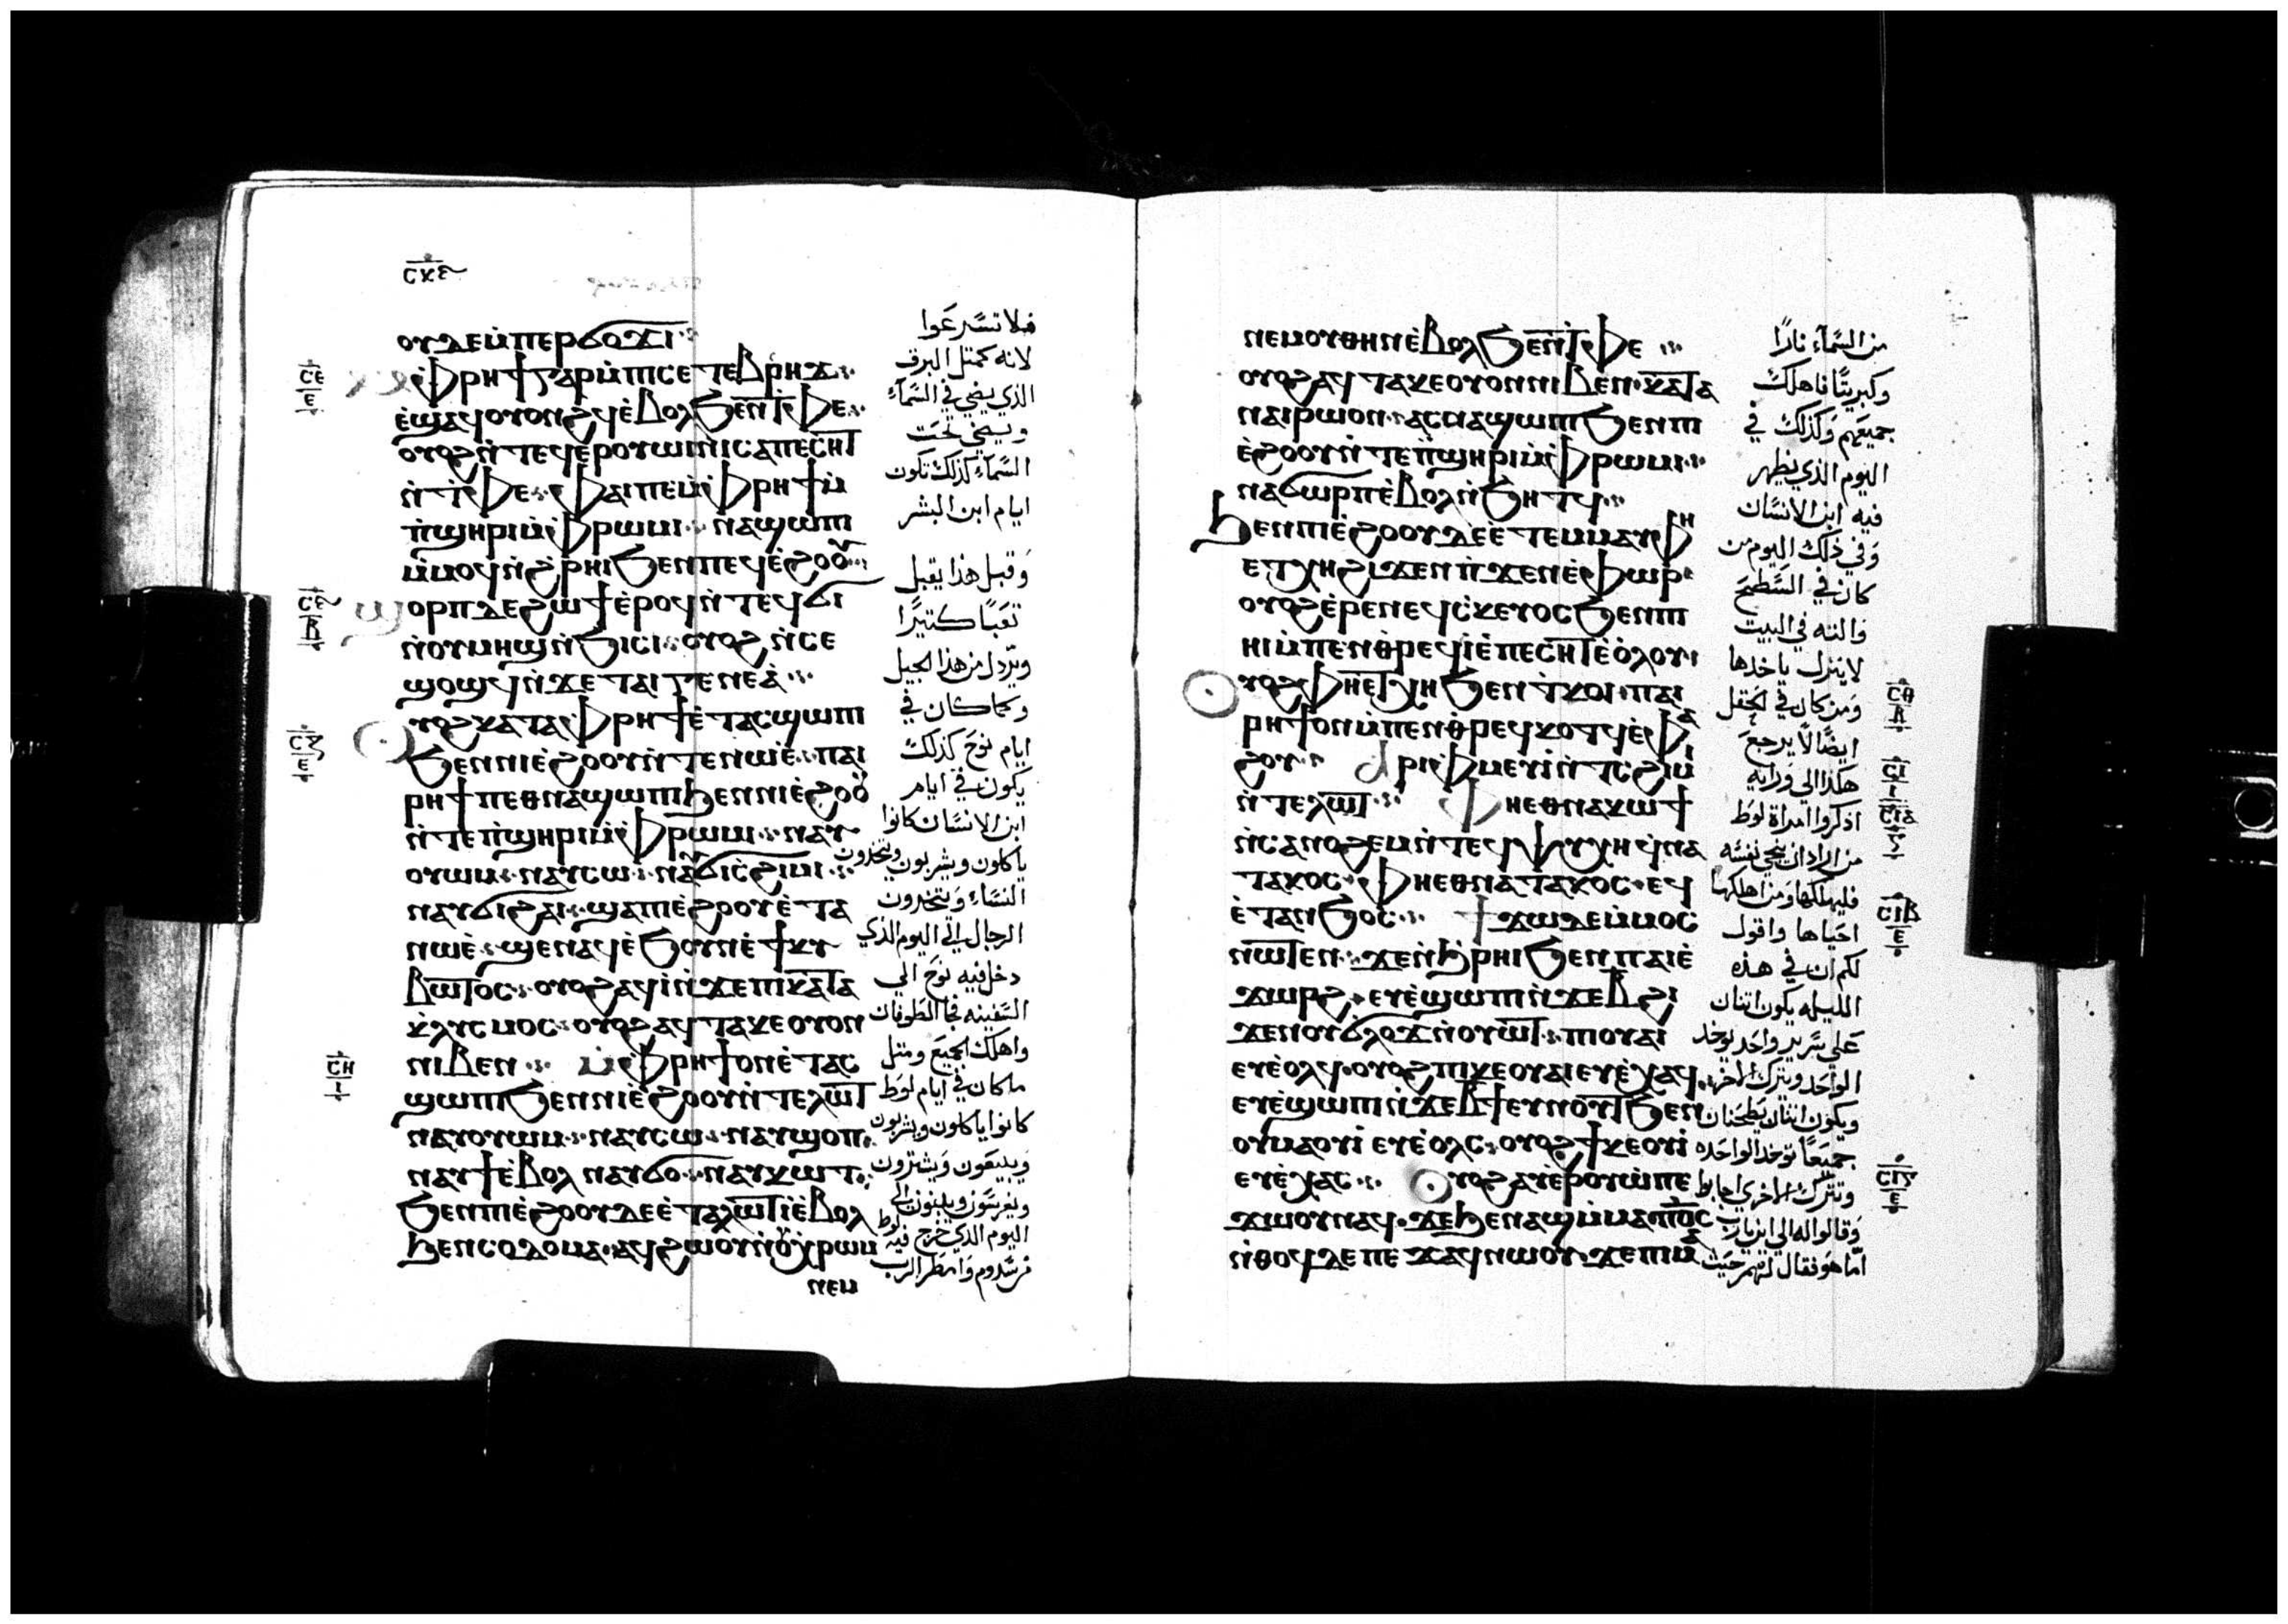 ⲥⲕⲋ
ⲟⲩⲇⲉ ⲙ̇ⲡⲉⲣϭⲟϫⲓ
ⲥⲉ
ⲉ
ⲙ̇ⲫⲣⲏϯ ⲅⲁⲣ ⲙ̇ⲡⲓⲥⲉⲧⲉⲃⲣⲏϫ
ⲉ̇ϣⲁϥⲟⲩⲟⲛϩϥ ⲉ̇ⲃⲟⲗ ϧⲉⲛ ⲧ̇ⲫⲉ
ⲟⲩⲟϩ ⲛ̇ⲧⲉϥⲉⲣⲟⲩⲱⲓⲛⲓ ⲥⲁⲡⲉⲥⲏⲧ
ⲛ̇ⲧ̇ⲫⲉ ⲫⲁⲓ ⲡⲉ ⲙ̇ⲫⲣⲏϯ ⲙ̇
ⲡ̇ϣⲏⲣⲓ ⲙ̇ⲫⲣⲱⲙⲓ ⲛⲁϣⲱⲡⲓ
ⲙ̇ⲙⲟϥ ⲛ̇ϩⲣⲏⲓ ϧⲉⲛ ⲡⲉϥⲉ̇ϩⲟⲟⲩ
ⲥⲋ
ⲃ
ϣⲟⲣⲡ ⲇⲉ ϩⲱϯ ⲉ̇ⲣⲟϥ ⲛ̇ⲧⲉϥϭⲓ
ⲛ̇ⲟⲩⲙⲏϣ ⲛ̇ϧⲓⲥⲓ ⲟⲩⲟϩ ⲛ̇ⲥⲉ
ϣⲟϣϥ ⲛ̇ϫⲉ ⲧⲁⲓⲅⲉⲛⲉⲁ̇
ⲥⲍ
ⲉ
ⲟⲩⲟϩ ⲕⲁⲧⲁ ⲫⲣⲏϯ ⲉ̇ⲧⲁⲥϣⲱⲡⲓ
ϧⲉⲛ ⲛⲓⲉ̇ϩⲟⲟⲩ ⲛ̇ⲧⲉ ⲛⲱⲉ̇ ⲡⲁⲓ
ⲣⲏϯ ⲡⲉⲑⲛⲁϣⲱⲡⲓ ϧⲉⲛ ⲛⲓⲉ̇ϩⲟⲟⲩ
ⲛ̇ⲧⲉ ⲡ̇ϣⲏⲣⲓ ⲙ̇ⲫⲣⲱⲙⲓ ⲛⲁⲩ
ⲟⲩⲱⲙ ⲛⲁⲩⲥⲱ ⲛⲁⲩϭⲓⲥ̇ϩⲓⲙⲓ
ⲛⲁⲩϭⲓϩⲁⲓ ϣⲁ ⲡⲓⲉ̇ϩⲟⲟⲩ ⲉ̇ⲧⲁ
ⲛⲱⲉ̇ ϣⲉⲛⲁϥ ⲉ̇ϧⲟⲩⲛ ⲉ̇ϯⲕⲩ
ⲃⲱⲧⲟⲥ ⲟⲩⲟϩ ⲁϥⲓ̇ ⲛ̇ϫⲉ ⲡⲓⲕⲁⲧⲁ
ⲕ̇ⲗⲩⲥⲙⲟⲥ ⲟⲩⲟϩ ⲁϥⲧⲁⲕⲉ ⲟⲩⲟⲛ
ⲥⲏ
ⲓ
ⲛⲓⲃⲉⲛ ⲙ̇ⲫⲣⲏϯ ⲟⲛ ⲉ̇ⲧⲁⲥ
ϣⲱⲡⲓ ϧⲉⲛ ⲛⲓⲉ̇ϩⲟⲟⲩ ⲛ̇ⲧⲉ ⲗⲱⲧ
ⲛⲁⲩⲟⲩⲱⲙ ⲛⲁⲩⲥⲱ ⲛⲁⲩϣⲟⲡ
ⲛⲁⲩϯ ⲉ̇ⲃⲟⲗ ⲛⲁⲩϭⲟ ⲛⲁⲩⲕⲱⲧ
ϧⲉⲛ ⲡⲓⲉ̇ϩⲟⲟⲩ ⲇⲉ ⲉ̇ⲧⲁ ⲗⲱⲧ ⲓ̇ ⲉ̇ⲃⲟⲗ
ϧⲉⲛ ⲥⲟⲇⲟⲙⲁ ⲁϥϩⲱⲟⲩ ⲛ̇ⲟⲩⲭⲣⲱⲙ
ⲛⲉⲙ
فلا تسرعوا
لانه كمثل البرق
الذي يضي في السمآء
ويضي تحت
السمآء كذلك تكون
ايام ابن البشر
وقبل هذا يقبل
تعبًا كثيرًا
ويرذل من هذا الجيل
وكما كان في
ايام نوح كذلك
يكون في ايام
ابن الانسان كانوا
ياكلون ويشربون ويتخذون
النساء ويتخذون
الرجال الي اليوم الذي
دخل فيه نوح الي
السفينه فجا الطوفان
واهلك الجميع ومثل
ما كان في ايام لوط
كانوا ياكلون ويشربون
ويبيعون ويشترون
ويغرسون ويبنون الي
اليوم الذي خرج فيه لوط
من سدوم وامطر الرب
ⲛⲉⲙ ⲟⲩⲑⲏⲛ ⲉ̇ⲃⲟⲗ ϧⲉⲛ ⲧ̇ⲫⲉ
ⲟⲩⲟϩ ⲁϥⲧⲁⲕⲉ ⲟⲩⲟⲛ ⲛⲓⲃⲉⲛ ⲕⲁⲧⲁ
ⲡⲁⲓⲣⲏϯ ⲟⲛ ⲁⲥⲛⲁϣⲱⲡⲓ ϧⲉⲛ ⲡⲓ
ⲉ̇ϩⲟⲟⲩ ⲛ̇ⲧⲉ ⲡ̇ϣⲏⲣⲓ ⲙ̇ⲫⲣⲱⲙⲓ
ⲛⲁϭⲱⲣⲡ ⲉ̇ⲃⲟⲗ ⲛ̇ϧⲏⲧϥ
ϧⲉⲛ ⲡⲓⲉ̇ϩⲟⲟⲩ ⲇⲉ ⲉ̇ⲧⲉⲙⲙⲁⲩ ⲫⲏ
ⲉⲧⲭⲏ ϩⲓϫⲉⲛ ⲡ̇ϫⲉⲛⲉⲫⲱⲣ
ⲟⲩⲟϩ ⲉ̇ⲣⲉ ⲛⲉϥⲥ̇ⲕⲉⲩⲟⲥ ϧⲉⲛ ⲡⲓ
ⲏⲓ ⲙ̇ⲡⲉⲛⲑ̇ⲣⲉϥⲓ̇ ⲉ̇ⲡⲉⲥⲏⲧ ⲉ̇ⲟⲗⲟⲩ
ⲥⲑ
ⲃ
ⲟⲩⲟϩ ⲫⲏⲉⲧⲭⲏ ϧⲉⲛ ⲧ̇ⲕⲟⲓ ⲡⲁⲓ
ⲣⲏϯ ⲟⲛ ⲙ̇ⲡⲉⲛⲑ̇ⲣⲉϥⲕⲟⲧϥ ⲉ̇ⲫⲁ
ⲥⲓ
ⲓ
ϩⲟⲩ ⲁⲣⲓⲫⲙⲉⲩⲓ̇ ⲛ̇ⲧⲥϩⲓⲙⲓ
ⲥⲓⲁ
ⲛ̇ⲧⲉ ⲗⲱⲧ ⲫⲏⲉⲑⲛⲁⲕⲱϯ
ⲛ̇ⲥⲁ ⲛⲟϩⲉⲙ ⲛ̇ⲧⲉϥⲯⲩⲭⲏ ϥⲛⲁ
ⲧⲁⲕⲟⲥ ⲫⲏⲉⲑⲛⲁⲧⲁⲕⲟⲥ ⲉϥ
ⲥⲓⲃ
ⲉ
ⲉ̇ⲧⲁⲛϧⲟⲥ ϯϫⲱ ⲇⲉ ⲙ̇ⲙⲟⲥ
ⲛⲱⲧⲉⲛ ϫⲉ ⲛ̇ϩⲣⲏⲓ ϧⲉⲛ ⲡⲁⲓⲉ̇
ϫⲱⲣϩ ⲉⲩⲉ̇ϣⲱⲡⲓ ⲛ̇ϫⲉ ⲃ̄ ϩⲓ
ϫⲉⲛ ⲟⲩϭⲗⲟϫ ⲛ̇ⲟⲩⲱⲧ ⲡⲓⲟⲩⲁⲓ
ⲉⲩⲉ̇ⲟⲗϥ ⲟⲩⲟϩ ⲡⲓⲕⲉⲟⲩⲁⲓ ⲉⲩⲉ̇ⲭⲁϥ
ⲉⲩⲉ̇ϣⲱⲡⲓ ⲛ̇ϫⲉ ⲃ̄ϯ ⲉⲩⲛⲟⲩⲧ ϧⲉⲛ
ⲟⲩⲙⲁ ⲟⲩⲓ̇ ⲉⲩⲉ̇ⲟⲗⲥ ⲟⲩⲟϩ ϯⲕⲉⲟⲩⲓ̇
ⲥⲓⲅ
ⲉ
ⲉⲩⲉ̇ⲭⲁⲥ ⲟⲩⲟϩ ⲁⲩⲉ̇ⲣⲟⲩⲱ̇ ⲡⲉ
ϫⲱⲟⲩ ⲛⲁϥ ϫⲉ ϧⲉⲛ ⲁϣ ⲙ̇ⲙⲁ ⲡ⳪
ⲛ̇ⲑⲟϥ ⲇⲉ ⲡⲉϫⲁϥ ⲛⲱⲟⲩ ϫⲉ ⲡⲓⲙⲁ
من السمآء نارًا
وكبريتًا فاهلك
جميعهم وكذلك في
اليوم الذي يظهر
فيه ابن الانسان
وفي ذلك اليوم من
كان في السطح
والته في البيت
لا ينزل ياخذها
ومن كان في الحقل
ايضًا لا يرجع
هكذا الي ورايه
اذكروا امراة لوط
من اراد ان ينجي نفسه
فليهلكها ومن اهلكها
احياها واقول
لكم ان في هذه
الليله يكون اثنان
علي سرير واحد يوخذ
الواحد ويترك الاخر
ويكون اثنتان يطحنان
جميعًا توخذ الواحده
وتترك الاخري اجابوا
وقالوا له الي اين يارب
اما هو فقال لهم حيث